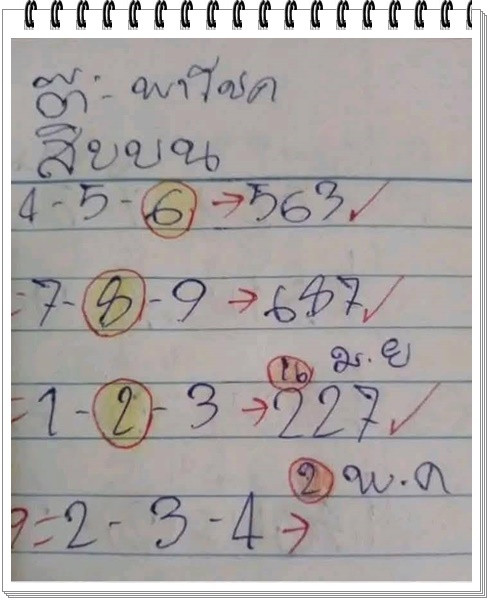 ต๊ะ พารีชค
สิบบน
4-5-6 → 563 ✓
=7-8-9 → 687 ✓
16 ม.ย
=1-2-3 → 227 ✓
2 พ.ค
=2-3-4 →